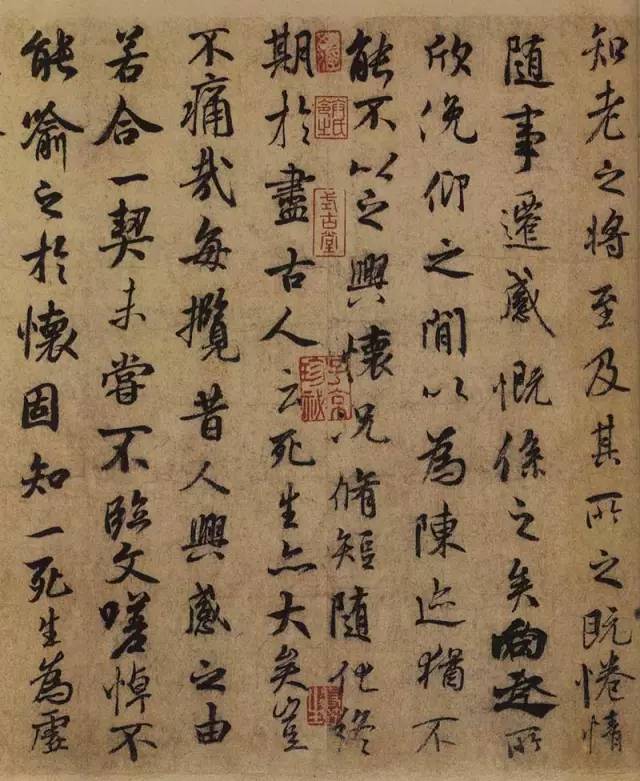 知老之将至及其所之既惓情
随事遷感慨係之矣向之所
欣俛仰之閒以為陳迹猶不
能不以之興懷况脩短随化終
期於盡古人云死生亦大矣豈
不痛哉每攬昔人興感之由
若合一契未嘗不臨文嗟悼不
能喻之於懷固知一死生為虛
式古堂
子京珍祕